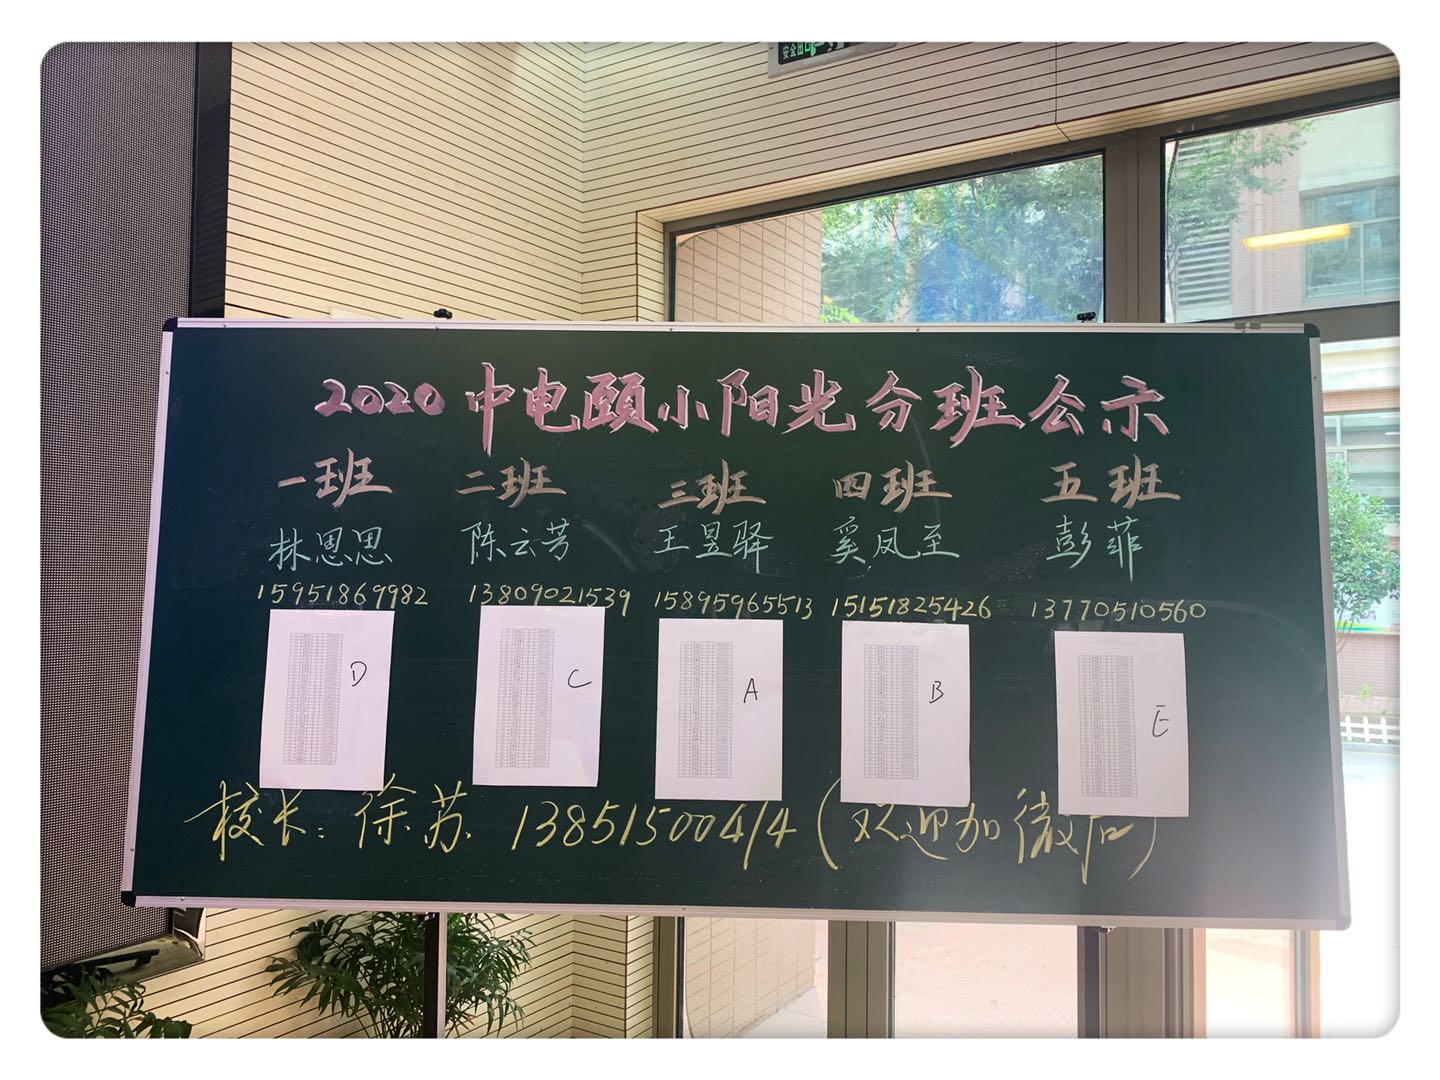 安全出口
2020 中电颐小阳光分班公示
一班 二班 三班 四班 五班
林思思 陈云芳 王昱驿 奚凤至 彭菲
15951869982 13809021539 15895965513 15151825426 13770510560
D C A B E
校长：徐苏 13851500414（欢迎加微信）